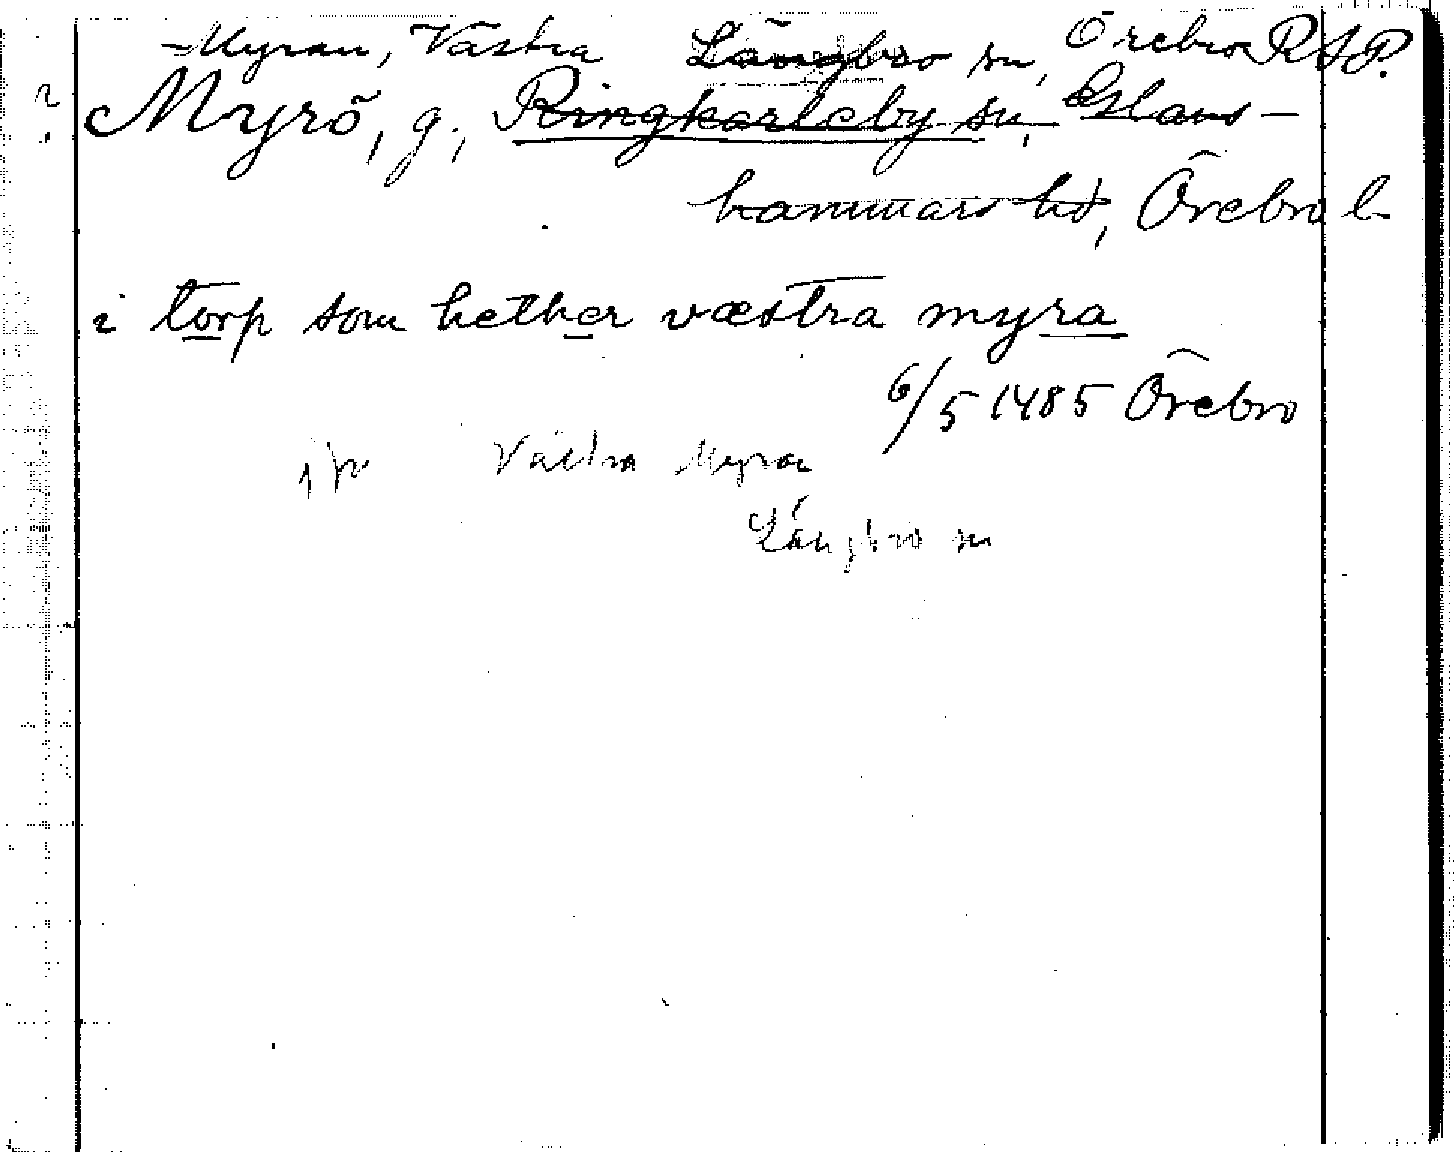 Myran, Västra Långbro sn, Örebro RAP.
Myrö, g., Ringkarleby sn, Glans-
hammars hd, Örebro l.
i torp som hether væstra myra
6/5 1485 Örebro
Västra Myra
Långbro sn